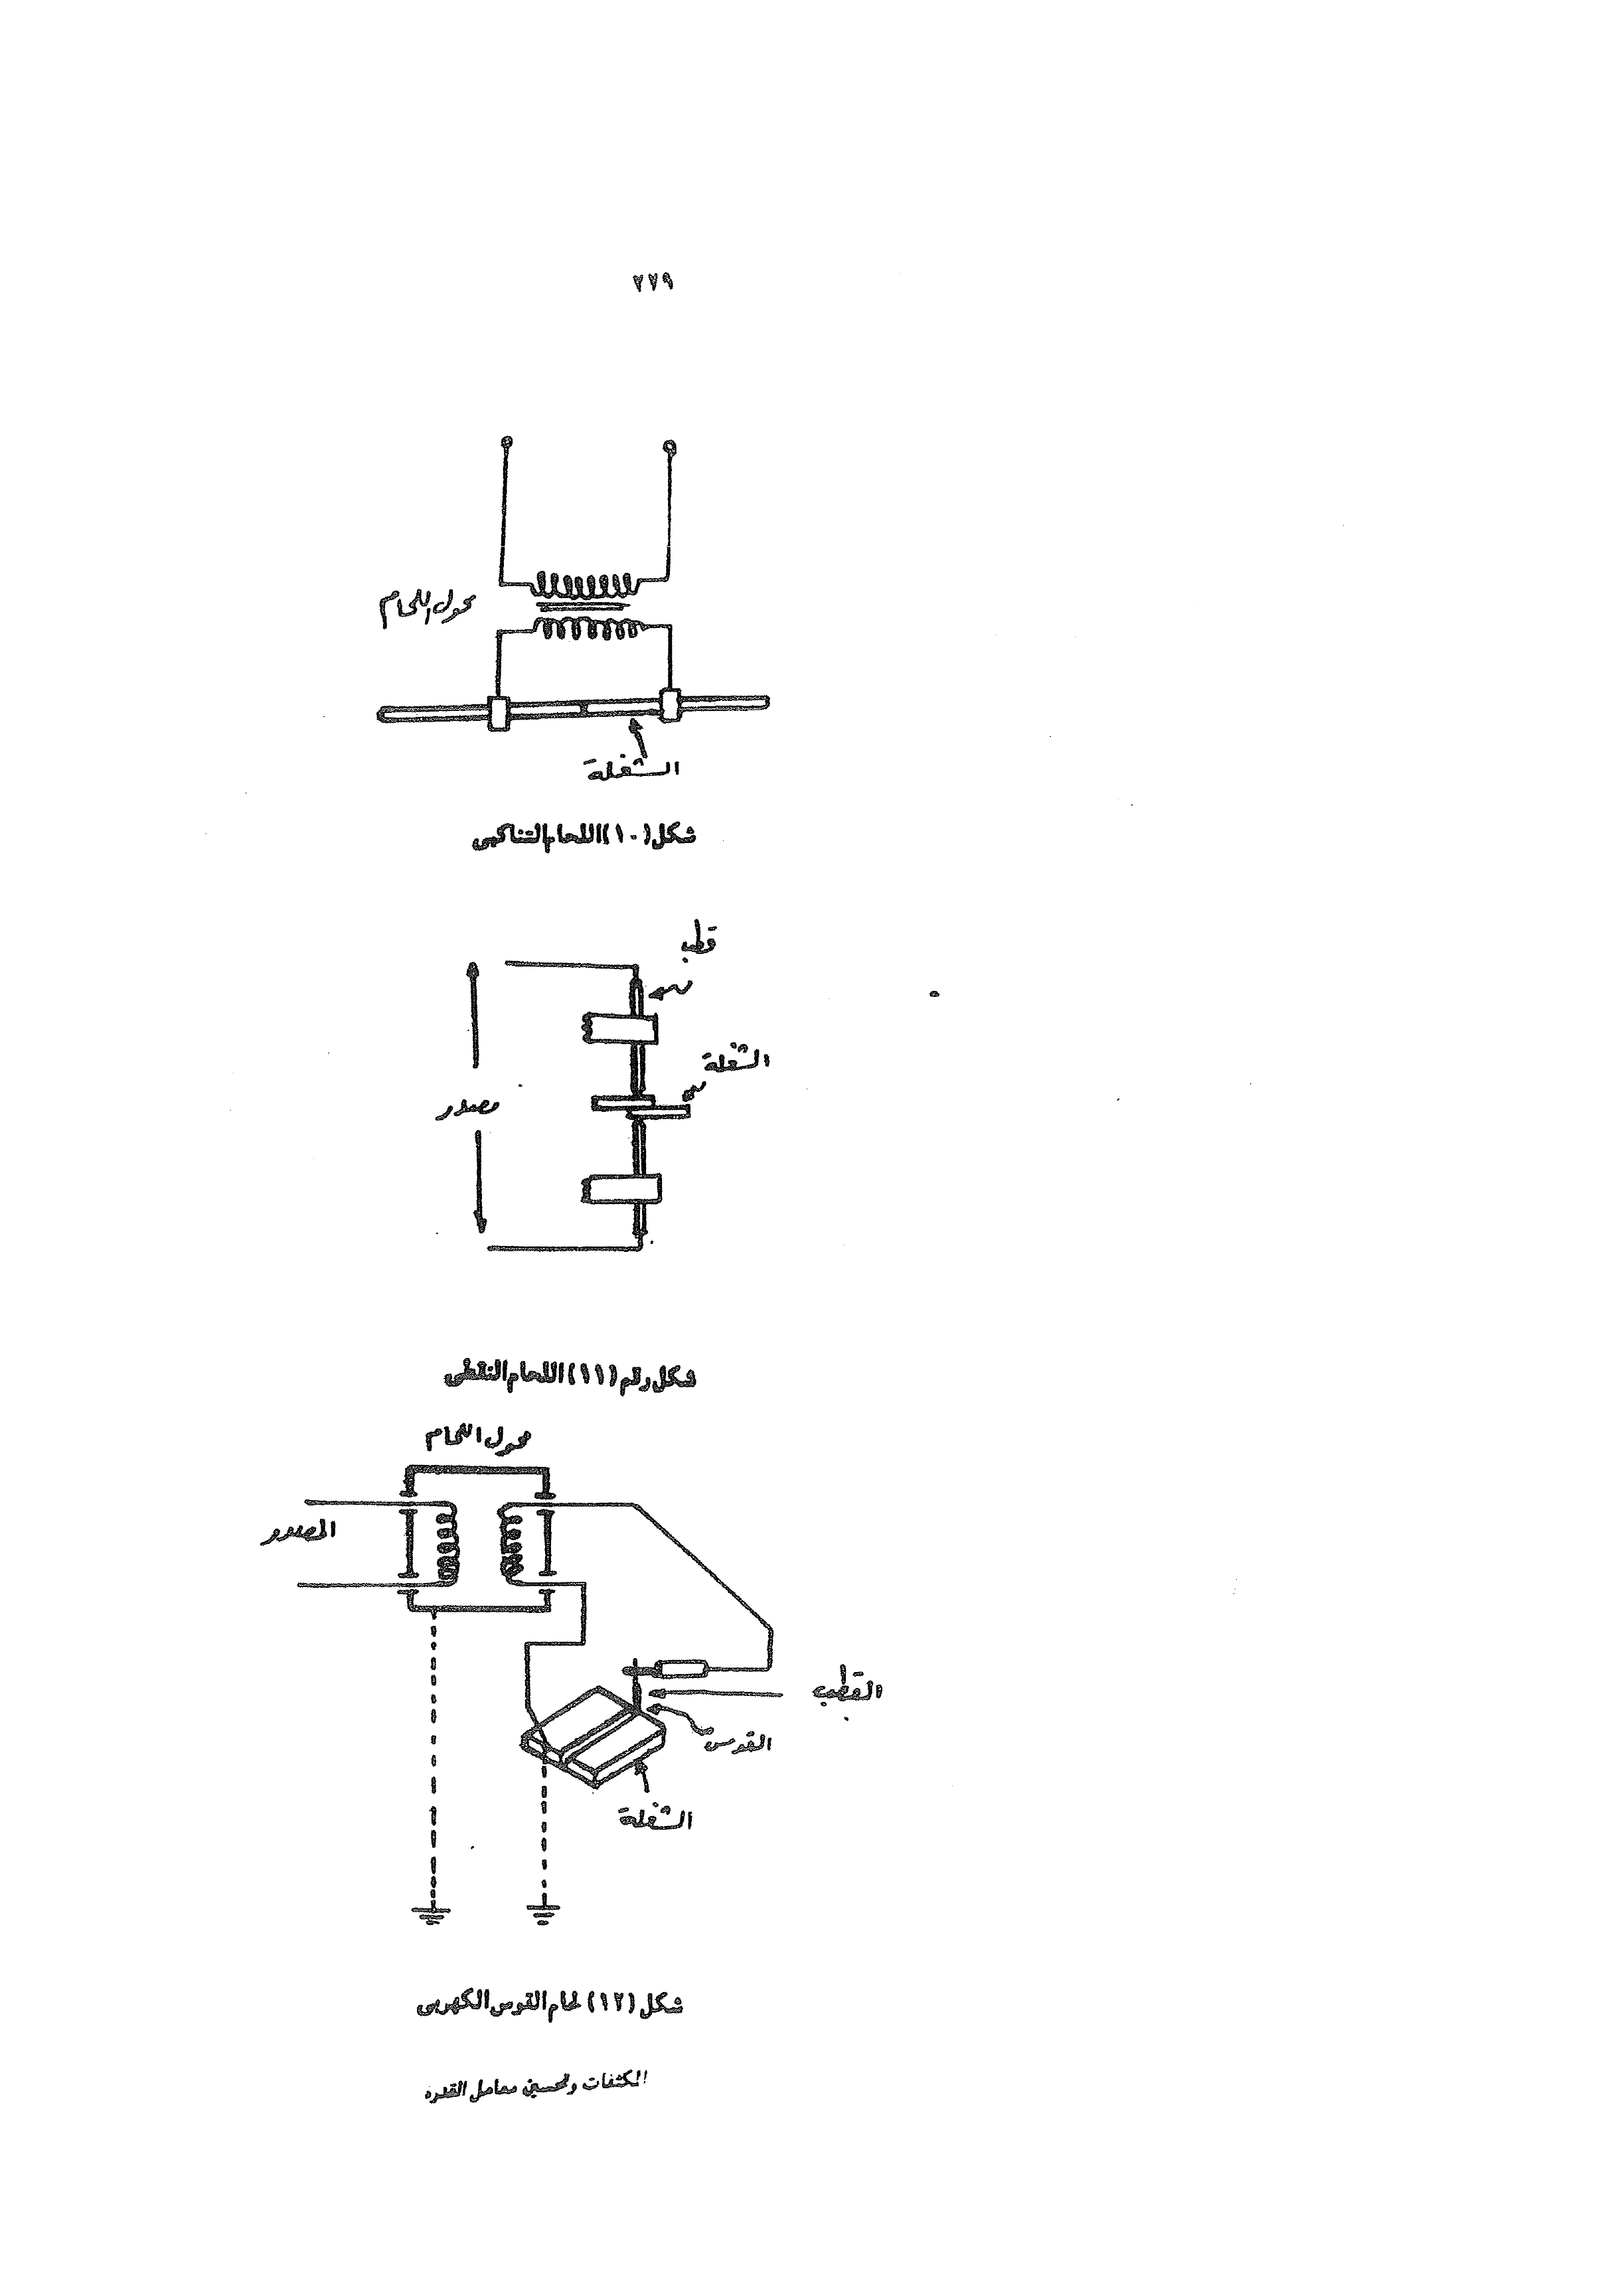 ٢٢٩
محول اللحام
الشغلة
شكل (١٠) اللحام التناكبى
قطب
الشغلة
مصدر
شكل رقم (١١) اللحام النقطى
محول اللحام
المصدر
القطب
القوس
الشغلة
شكل (١٢) لحام القوس الكهربى
المكثفات وتحسين معامل القدره